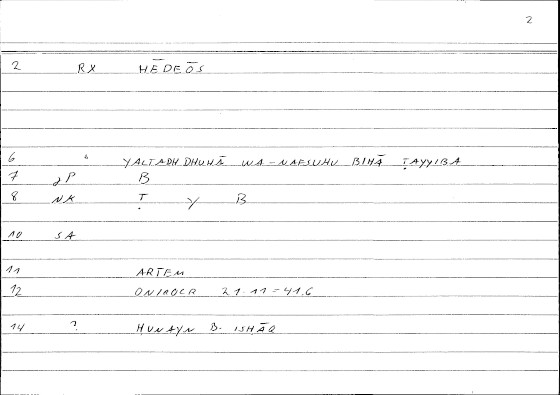 2
2 RX HĒDEŌS
6 " YALTADHDHUHĀ WA-NAFSUHU BIHĀ ṬAYYIBA
7 JP B
8 NK Ṭ Y B
10 SA
11 ARTEM
12 ONIROCR 21.11=41.6
14 ? ḤUNAYN B. ISḤĀQ